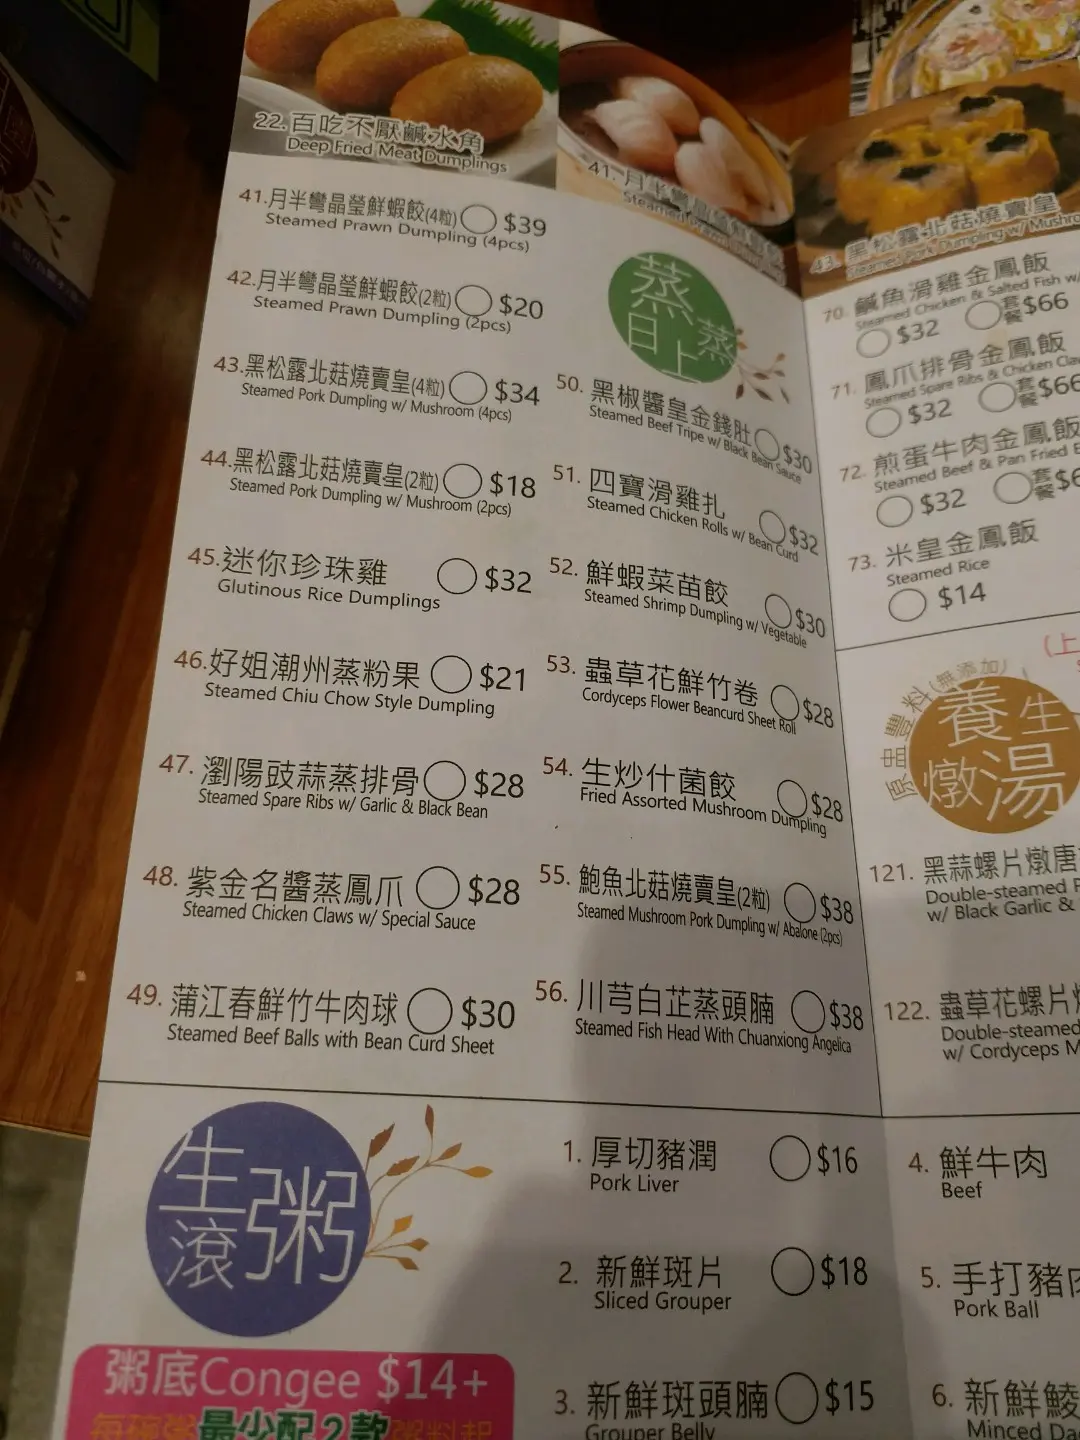 22.百吃不厭鹹水角
Deep Fried Meat Dumplings
41.月半彎晶瑩鮮蝦餃
Steamed Prawn Dumpling
43.黑松露北菇燒賣皇
Steamed Pork Dumpling w/ Mushro
41.月半彎晶瑩鮮蝦餃(4粒) $39
Steamed Prawn Dumpling (4pcs)
42.月半彎晶瑩鮮蝦餃(2粒) $20
Steamed Prawn Dumpling (2pcs)
43.黑松露北菇燒賣皇(4粒) $34
Steamed Pork Dumpling w/ Mushroom (4pcs)
44.黑松露北菇燒賣皇(2粒) $18
Steamed Pork Dumpling w/ Mushroom (2pcs)
45.迷你珍珠雞 $32
Glutinous Rice Dumplings
46.好姐潮州蒸粉果 $21
Steamed Chiu Chow Style Dumpling
47. 瀏陽豉蒜蒸排骨 $28
Steamed Spare Ribs w/ Garlic & Black Bean
48. 紫金名醬蒸鳳爪 $28
Steamed Chicken Claws w/ Special Sauce
49. 蒲江春鮮竹牛肉球 $30
Steamed Beef Balls with Bean Curd Sheet
蒸蒸
日上
50. 黑椒醬皇金錢肚 $30
Steamed Beef Tripe w/ Black Bean Sauce
51. 四寶滑雞扎 $32
Steamed Chicken Rolls w/ Bean Curd
52. 鮮蝦菜苗餃 $30
Steamed Shrimp Dumpling w/ Vegetable
53. 蟲草花鮮竹卷 $28
Cordyceps Flower Beancurd Sheet Roll
54. 生炒什菌餃 $28
Fried Assorted Mushroom Dumpling
55. 鮑魚北菇燒賣皇(2粒) $38
Steamed Mushroom Pork Dumpling w/ Abalone (2pcs)
56. 川芎白芷蒸頭腩 $38
Steamed Fish Head With Chuanxiong Angelica
70. 鹹魚滑雞金鳳飯
Steamed Chicken & Salted Fish w/
$32 套餐 $66
71. 鳳爪排骨金鳳飯
Steamed Spare Ribs & Chicken Cla
$32 套餐 $66
72. 煎蛋牛肉金鳳飯
Steamed Beef & Pan Fried
$32 套餐 $6
73. 米皇金鳳飯
Steamed Rice
$14
(上
原盅豐料(無添加)
養生
燉湯
121. 黑蒜螺片燉唐
Double-steamed
w/ Black Garlic &
122. 蟲草花螺片
Double-steamed
w/ Cordyceps M
生滾粥
粥底Congee $14+
每碗粥最少配2款粥料起
1. 厚切豬潤 $16
Pork Liver
2. 新鮮斑片 $18
Sliced Grouper
3. 新鮮斑頭腩 $15
Grouper Belly
4. 鮮牛肉
Beef
5. 手打豬肉
Pork Ball
6. 新鮮鯪
Minced Da